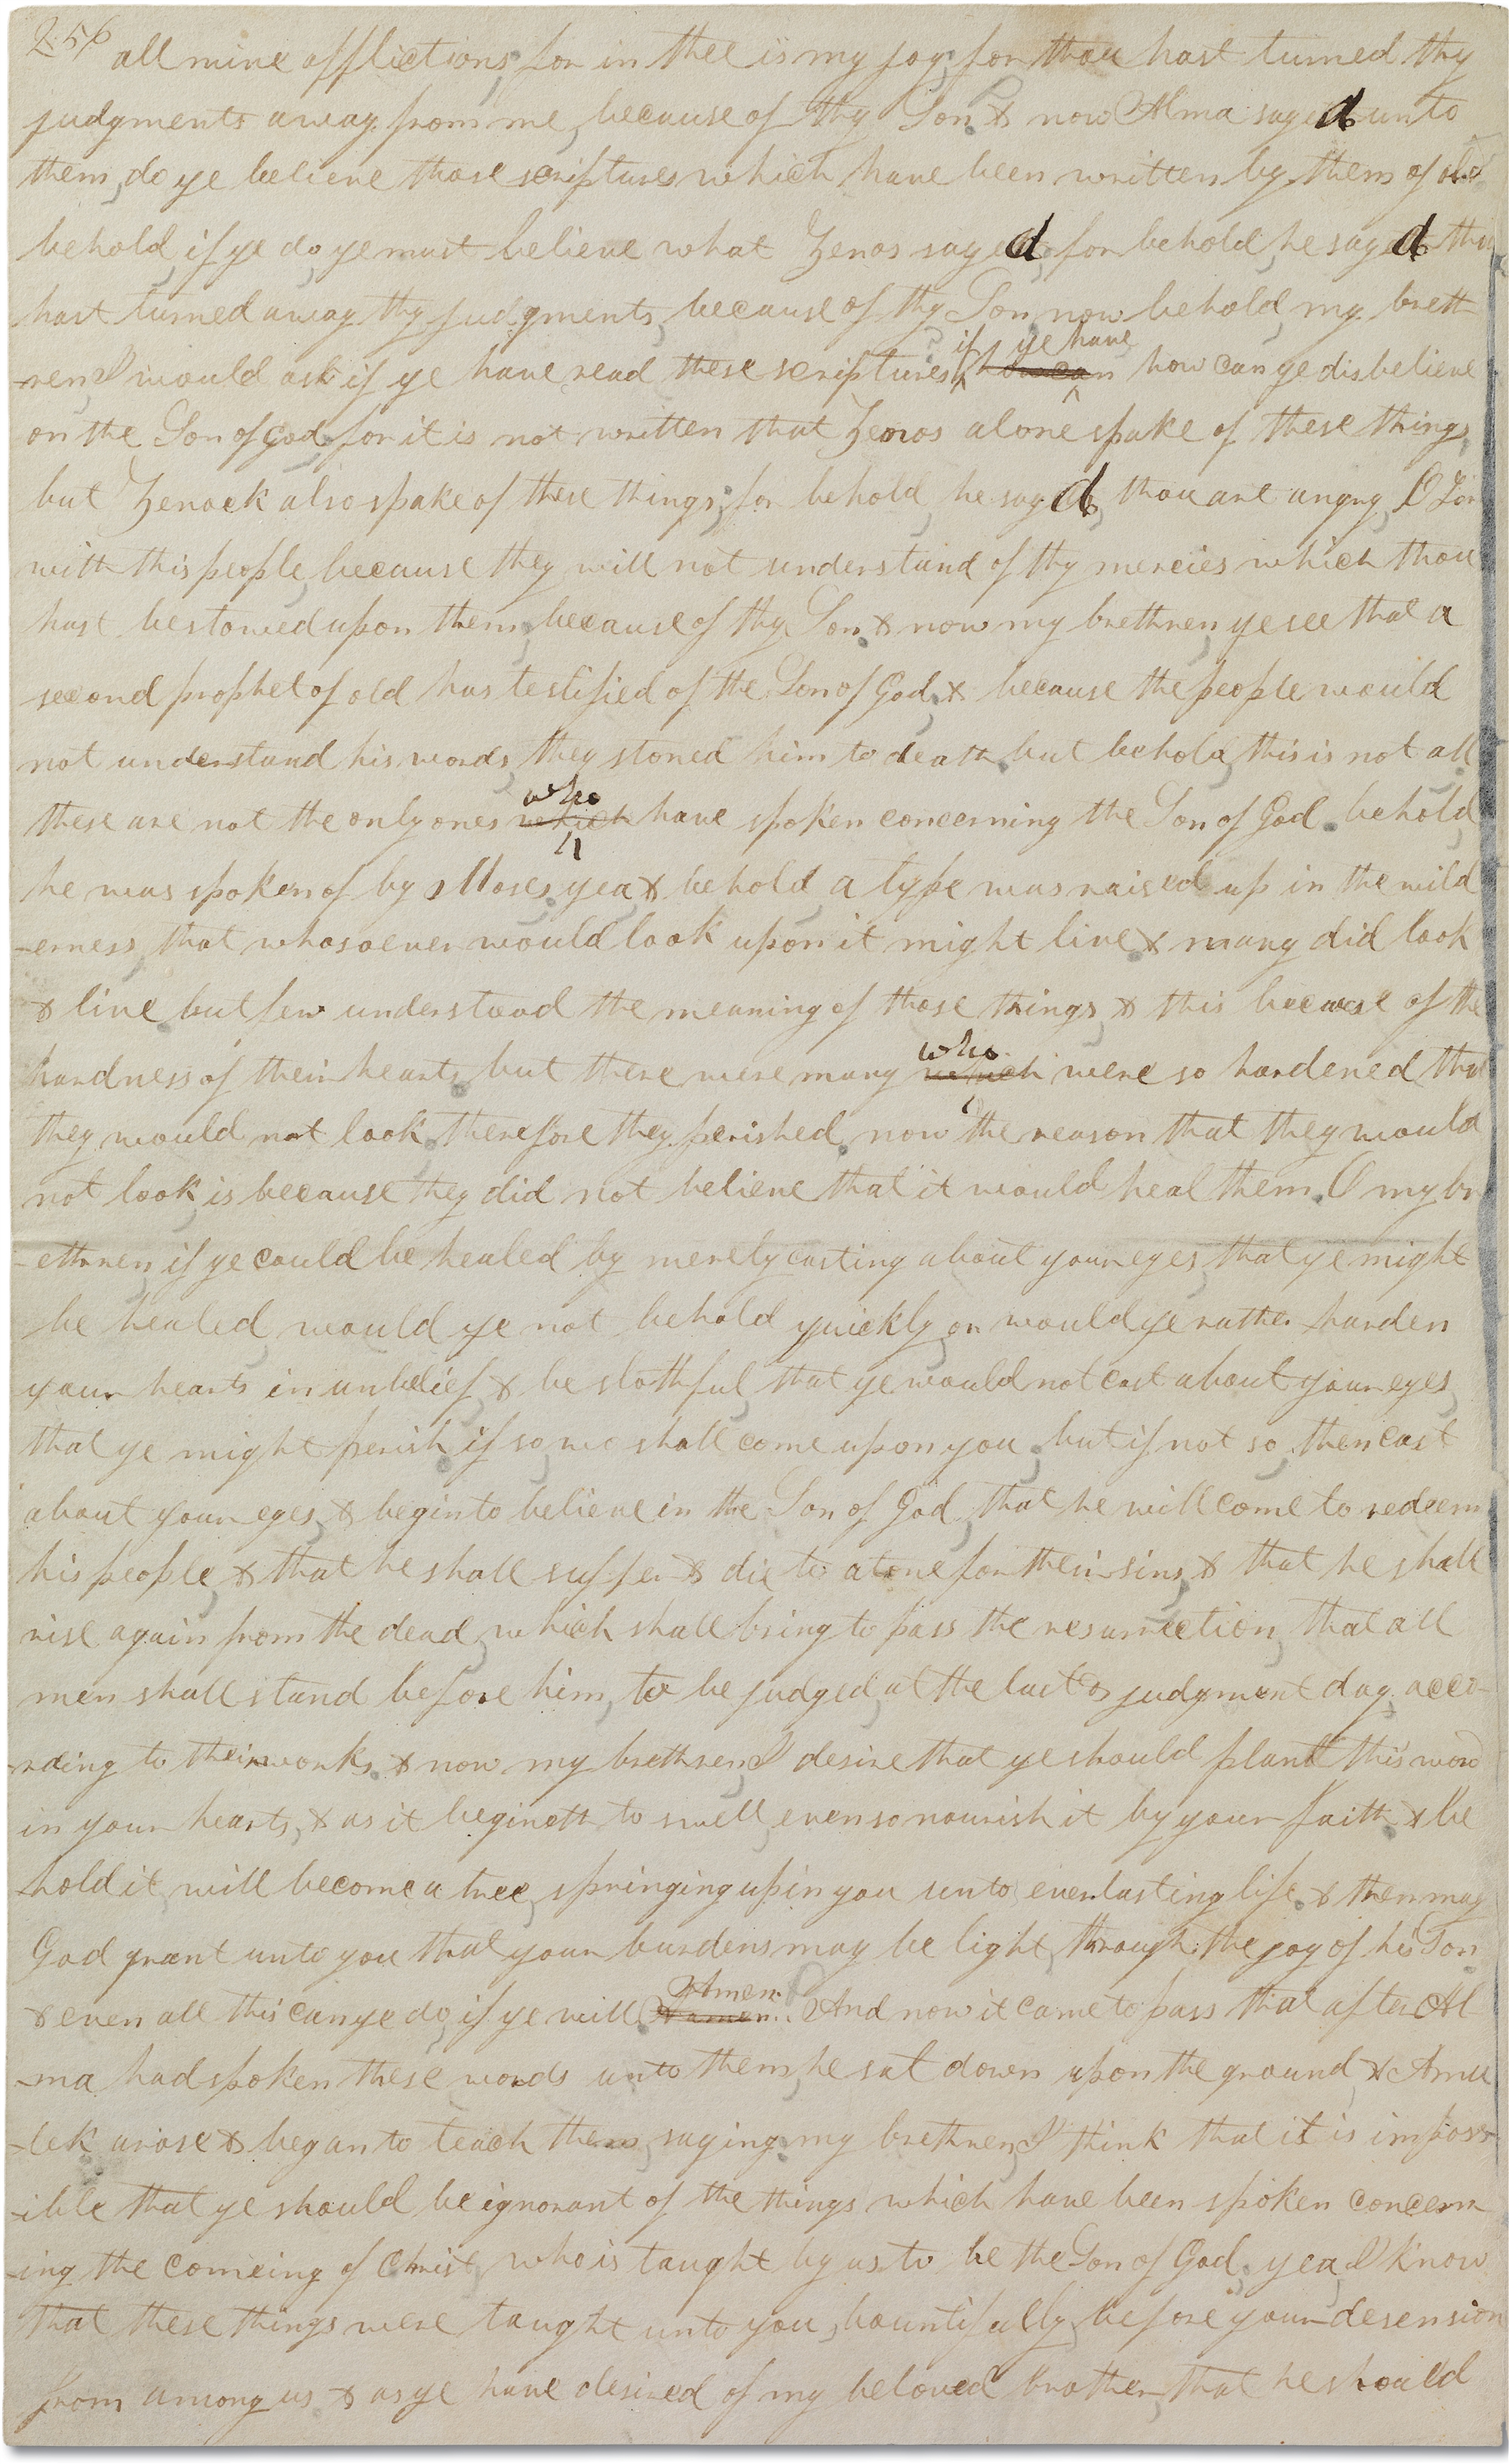 256 all mine afflictions, for in thee is my joy, for thou hast turned thy
judgments away from me, because of thy Son. & now Alma sayed unto
them, do ye believe those scriptures which have been written by them of old
behold, if ye do, ye must believe what Zenos sayed, for behold, he sayed thou
hast turned away thy judgments, because of thy Son, now behold, my breth
-ren, I would ask if ye have read these scriptures, if ye have how can how can ye disbelieve
on the Son of God, for it is not written that Zenos alone spake of these things,
but Zenock also spake of these things, for behold, he sayd, thou art angry, O Lor
with this people, because they will not understand of thy mercies which thou
hast bestowed upon them, because of thy Son. & now my brethren, ye see that a
second prophet of old has testified of the Son of God, & because the people would
not understand his words, they stoned him to death, but behold, this is not all
these are not the only ones who which have spoken concerning the Son of God. behold,
he was spoken of by Moses, yea & behold, a type was raised up in the wild
-erness, that whosoever would look upon it might live, & many did look
& live, but few understood the meaning of those things, & this because of the
hardness of their hearts, but there were many who which were so hardened that
they would not look, therefore they perished, now the reason that they would
not look, is because they did not believe that it would heal them. O my br
-ethren, if ye could be healed by merely casting about your eyes, that ye might
be healed, would ye not behold quickly, or would ye rather harden
your hearts in unbelief, & be slothful, that ye would not cast about your eyes,
that ye might perish, if so, wo shall come upon you, but if not so, then cast
about your eyes, & begin to believe in the Son of God, that he will come to redeem
his people, & that he shall suffer & die to atone for their sins, & that he shall
rise again from the dead, which shall bring to pass the resurrection, that all
men shall stand before him, to be judged, at the last & judgment day, acco-
-rding to their works. & now my brethren, I desire that ye should plant this word
in your hearts, & as it begineth to swell, even so nourish it by your faith, & be
hold it, will become a tree, springing up in you unto everlasting life, & then may
God grant unto you that your burdens may be light, through the joy of his Son
& even all this can ye do, if ye will Amen. & amen. And now it came to pass that after Al
-ma, had spoken these words unto them, he sat down upon the ground, & Amu
-lek arose & began to teach them, saying, my brethren, I think that it is imposs
-ible that ye should be ignorant of the things which have been spoken concern
-ing the comeing of Christ, who is taught by us to be the Son of God, yea, I know
that these things were taught unto you, bountifully, before your desension
from among us, & as ye have desired of my beloved brother, that he should